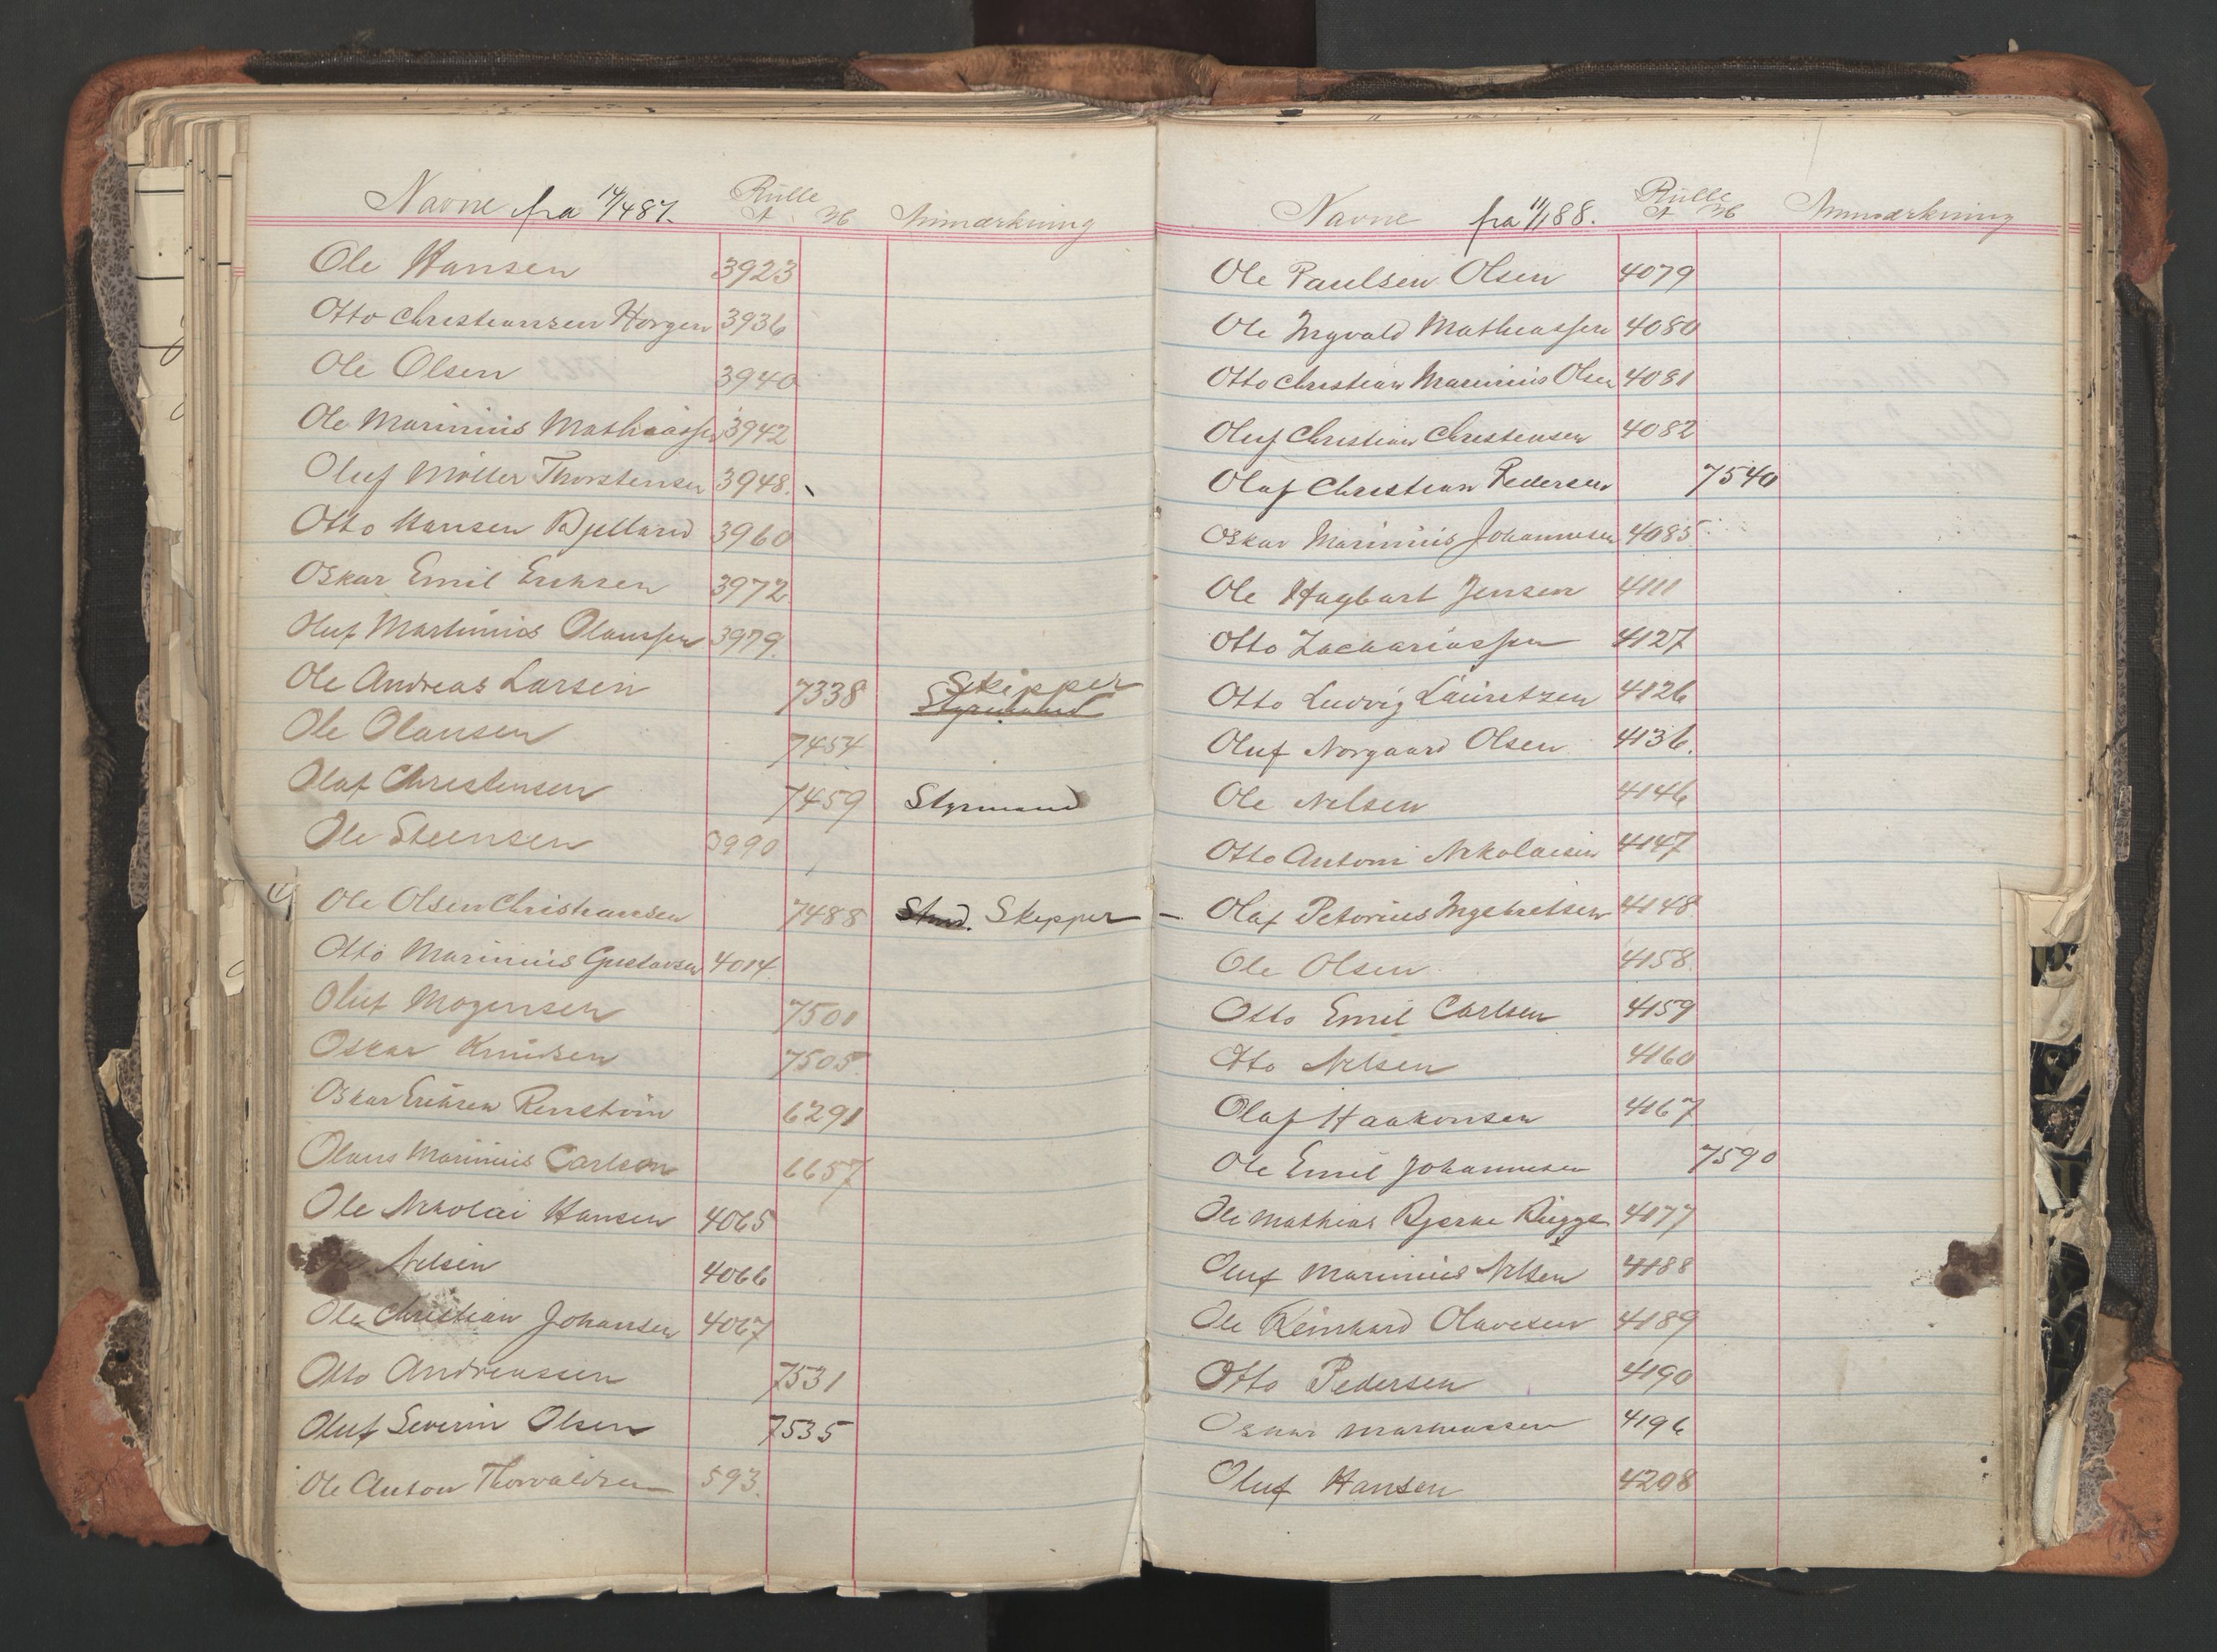 Navne fra 14/4 87. Rulle Anmærkning
Ole Hansen 3923
Otto Christiansen Horgen 3936
Ole Olsen 3940
Ole Marinius Mathiassen 3942
Oluf Møller Thorstensen 3948.
Otto Hansen Bjelland 3960
Oskar Emil Eriksen 3972
Oluf Martinius Olaussen 3979
Ole Andreas Larsen 7338 Skipper Styrmand
Ole Olausen 7454
Olaf Christensen 7459 Styrmand
Ole Steensen 3990
Ole Olsen Christiansen 7488 Stmd. Skipper
Otto Marinius Gustavsen 4014
Oluf Mogensen 7501
Oskar Knudsen 7505
Oskar Eriksen Renstrøm 6291
Olaus Marinius Carlson 6657
Ole Nikolai Hansen 4065
Nilsen 4066
Ole Christian Johansen 4067
Otto Andreassen 7531
Oluf Severin Olsen 7535
Ole Anton Thorvaldsen 593.
Navne fra 11/1 88. Rulle Anmærkning
Ole Paulsen Olsen 4079
Ole Ingvald Mathiassen 4080
Otto Christian Marinius Olsen 4081
Oluf Christian Christensen 4082
Olaf Christian Pedersen 7540
Oskar Marinius Johannesen 4085
Ole Hagbart Jensen 4111
Otto Zachariassen 4127
Otto Ludvig Lauretzen 4126
Oluf Norgaard Olsen 4136.
Ole Nilsen 4146
Otto Antoni Nikolaisen 4147
Olaf Petorius Ingebretsen 4148
Ole Olsen 4158
Otto Emil Carlsen 4159
Otto Nilsen 4160
Olaf Haakonsen 4167
Ole Emil Johannesen 7590
Ole Mathias Bjerke Bugge 4177
Oluf Marinius Nilsen 4188
Ole Reinhard Olavesen 4189
Otto Pedersen 4190
Oskar Mathiassen 4196
Oluf Hansen 4208